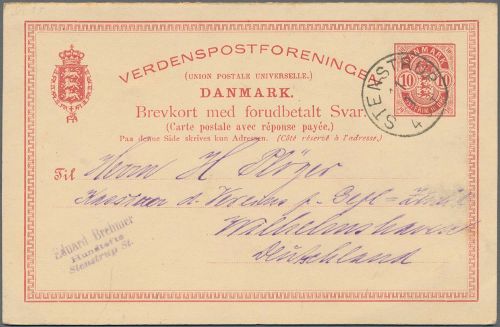 VERDENSPOSTFORENINGEN
(UNION POSTALE UNIVERSELLE.)
DANMARK.
Brevkort med forudbetalt Svar.
(Carte postale avec réponse payée.)
Paa denne Side skrives kun Adressen. (Côté réservé à l'adresse.)
DANMARK
10 10
STENSTRUP
Til Herrn H. Plöger
Kassirer d. Vereins f. Gefl-
Wilhelmshaven
Deutschland
Eduard Brehmer
Stenstrup St.